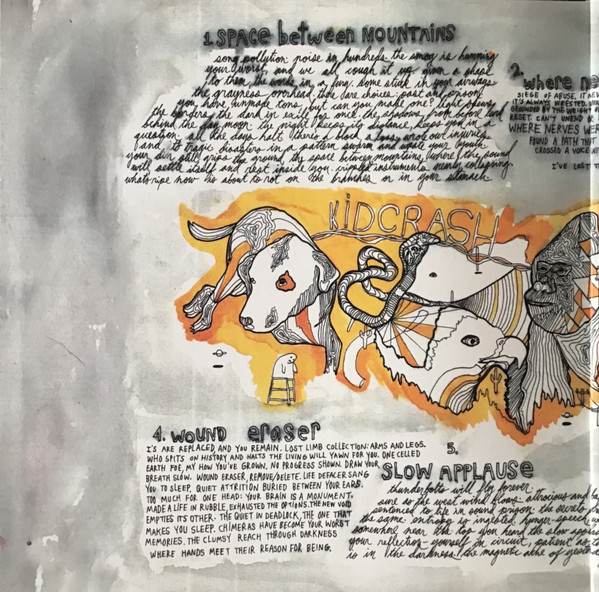 1. SPACE between MOUNTAINS
song pollution: noise in hundreds. the smog is humming
your worst, and we all cough it up given a chase
to then, the words in a lung. some stuck in your airways
the grayness overhead. those dare choices: cast and poison!
you have unmade tons, but can you make one? light
the borders, the dark in exile as once. the shadows,
behind the moon. the night keeps its distance, keeps you in a
question, of the days halt. there's a block a
and to tragic disasters in a pattern
your grip the ground, the space between mountains, where the sound
will settle itself and rest inside you. crippled instruments
what's ripe now is about to rot on the branches or in your stomach
2. where ne
SIEGE OF ABUSE, IT
IT'S ALWAYS WRESTED,
GROUNDED BY THE WEIGHT
RESET. CAN'T UNBEND OR
WHERE NERVES WERE
FOUND A PATH THAT
CROSSED A VOICE
I'VE LOST T
KIDCRASH
4. WOUND eraser
I'S ARE REPLACED AND YOU REMAIN. LOST LIMB COLLECTION: ARMS AND LEGS.
WHO SPITS ON HISTORY AND WAITS THE LIVING WILL YAWN FOR YOU. ONE CELLED
EARTH FOE, MY HOW YOU'VE GROWN, NO PROGRESS SHOWN. DRAW YOUR
BREATH SLOW. WOUND ERASER, REMOVE/DELETE. LIFE DEFACER SANG
YOU TO SLEEP. QUIET ATTRITION BURIED BETWEEN YOUR EARS.
TOO MUCH FOR ONE HEAD: YOUR BRAIN IS A MONUMENT,
MADE A LIFE IN RUBBLE, EXHAUSTED THE OPTIONS. THE NEW VOID
EMPTIES ITS OTHER. THE QUIET IN DEADLOCK, THE ONE THAT
MAKES YOU SLEEP. CHIMERAS HAVE BECOME YOUR WORST
MEMORIES. THE CLUMSY REACH THROUGH DARKNESS
WHERE HANDS MEET THEIR REASON FOR BEING.
5.
SLOW APPLAUSE
thunderbolts will lay forever
sure as the west wind blows. atrocious and
sentenced to life in sound prison. the
the same entropy is inploded. hunger-speech
somewhere near the top you heard the slow
your reflection - yourself in circuit, patient as
is in the darkness. the magnetic ache of